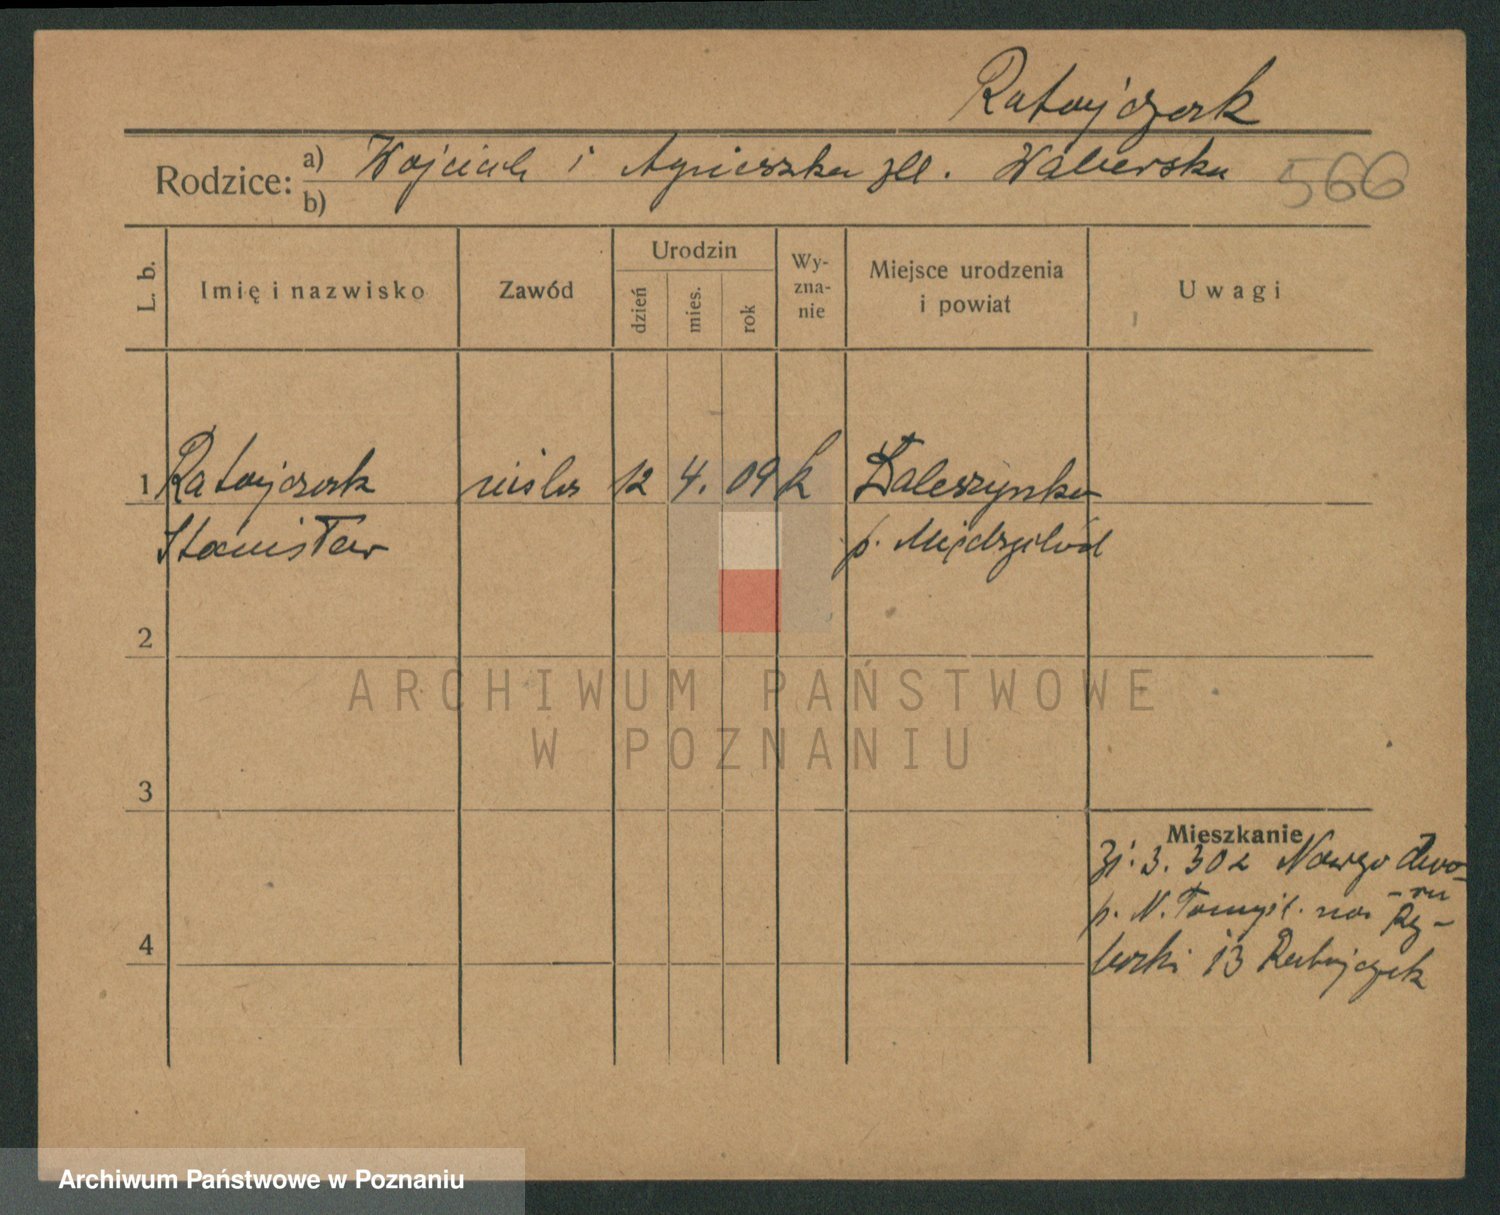 Ratajczak
Rodzice: a) Wojciech i Agnieszka zd. Waberska 566
b)
L. b.
Imię i nazwisko
Zawód
Urodzin
dzień
mies.
rok
Wy-
zna-
nie
Miejsce urodzenia
i powiat
Uwagi
1 Ratajczak cieśla 12 4. 09 k Daleszynko
Stanisław p. Międzychód
2
3
4
Mieszkanie
3. 302 Nowego Dwo-
-ru
p. N. Tomyśl. na
13 Ratajczak
ARCHIWUM PAŃSTWOWE
W POZNANIU
Archiwum Państwowe w Poznaniu